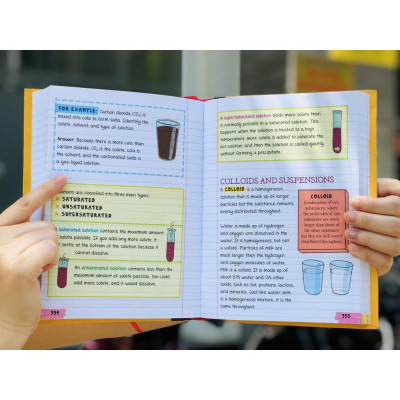 FOR EXAMPLE: Carbon dioxide (CO₂) is
mixed into cola to form soda. Identify the
solute, solvent, and type of solution.
Answer: Because there is more cola than
carbon dioxide, CO₂ is the solute, cola is
the solvent, and the carbonated soda is
a gas-liquid solution.
are classified into three main types:
SATURATED
UNSATURATED
SUPERSATURATED
saturated solution contains the maximum
amount of solute possible. If you add any more solute, it
settle at the bottom of the solution because it
cannot dissolve.
An unsaturated solution contains less than the
maximum amount of solute possible. You could
add more solute, and it would dissolve.
334
A supersaturated solution holds more solute than
is normally possible in a saturated solution. This
happens when the solution is heated to a high
temperature, more solute is added to saturate the
hot solution, and then the solution is cooled quickly
without forming a precipitate.
COLLOIDS AND SUSPENSIONS
A COLLOID is a homogeneous
solution that is made up of larger
particles but the substance remains
evenly distributed throughout.
COLLOID
Combination of two
substances, where
the molecules of one
substance are much
larger than those of
the other substance
but they are still evenly
distributed throughout.
Water is made up of hydrogen
and oxygen ions dissolved in the
water. It is homogeneous, but not
a colloid. Particles of milk are
much larger than the hydrogen
and oxygen molecules of water.
Milk is a colloid. It is made up of
about 87% water and 13% other
solids, such as fat, proteins, lactose,
and minerals. Just like water, milk
is a homogeneous mixture, it is the
same throughout.
335